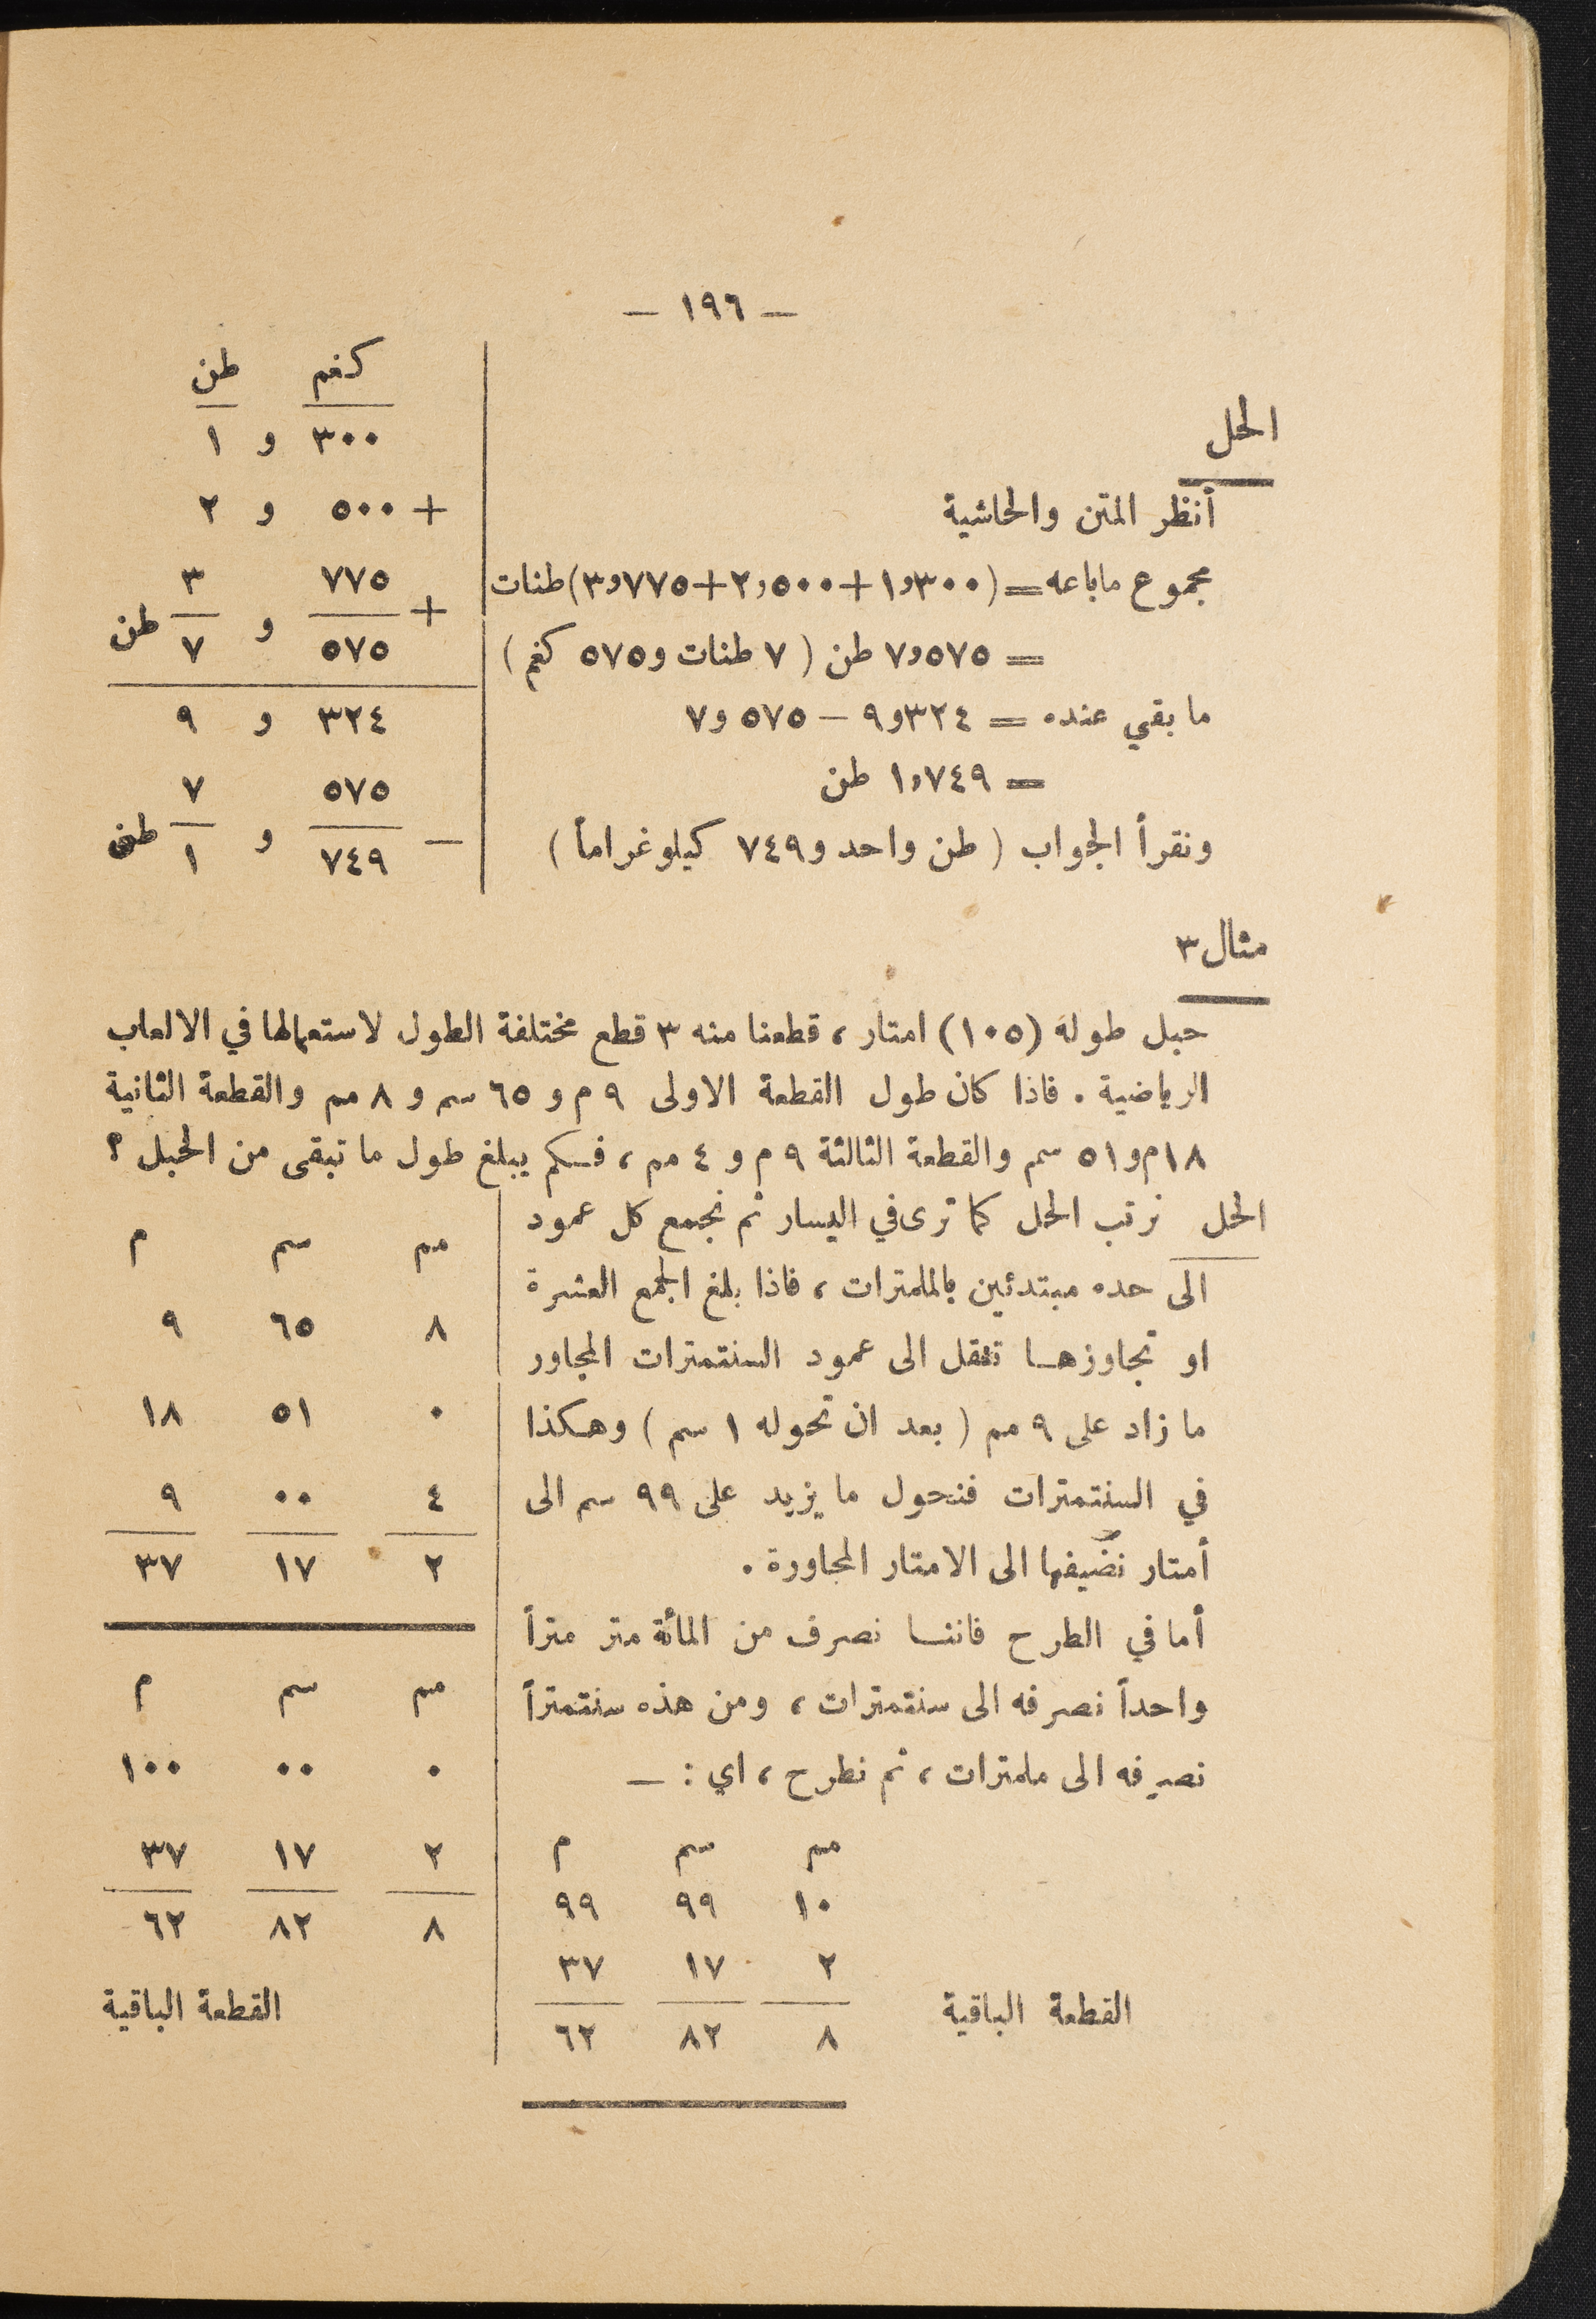 — ١٩٦ —
الحل
أنظر المتن والحاشية
مجموع ماباعه = (١٫٣٠٠ + ٢٫٥٠٠ + ٣٫٧٧٥) طنات
= ٧٫٥٧٥ طن ( ٧ طنات و ٥٧٥ كغم )
ما بقي عنده = ٩٫٣٢٤ — ٧٫٥٧٥
= ١٫٧٤٩ طن
ونقرأ الجواب ( طن واحد و ٧٤٩ كيلو غراماً )
كغم طن
٣٠٠ و ١
+ ٥٠٠ و ٢
+ ٧٧٥ ٣
٥٧٥ و ٧ طن
٣٢٤ و ٩
— ٥٧٥ ٧
٧٤٩ و ١ طن
مثال ٣
حبل طوله (١٠٥) امتار ، قطعنا منه ٣ قطع مختلفة الطول لاستعمالها في الالعاب
الرياضية . فاذا كان طول القطعة الاولى ٩ م و ٦٥ سم و ٨ مم والقطعة الثانية
١٨م و ٥١ سم والقطعة الثالثة ٩ م و ٤ مم ، فكم يبلغ طول ما تبقى من الحبل ؟
الحل نرتب الحل كما ترى في اليسار ثم نجمع كل عمود
الى حده مبتدئين بالملمترات ، فاذا بلغ الجمع العشرة
او تجاوزها تنقل الى عمود السنتمترات المجاور
ما زاد على ٩ مم ( بعد ان تحوله ١ سم ) وهكذا
في السنتمترات فنحول ما يزيد على ٩٩ سم الى
أمتار نضيفها الى الامتار المجاورة .
أما في الطرح فاننا نصرف من المأة متر متراً
واحداً نصرفه الى سنتمترات ، ومن هذه سنتمتراً
نصرفه الى ملمترات ، ثم نطرح ، اي : —
مم سم م
١٠ ٩٩ ٩٩
٢ ١٧ ٣٧
القطعة الباقية ٨ ٨٢ ٦٢
مم سم م
٨ ٦٥ ٩
٠ ٥١ ١٨
٤ ٠٠ ٩
٢ ١٧ ٣٧
مم سم م
٠ ٠٠ ١٠٠
٢ ١٧ ٣٧
٨ ٨٢ ٦٢
القطعة الباقية